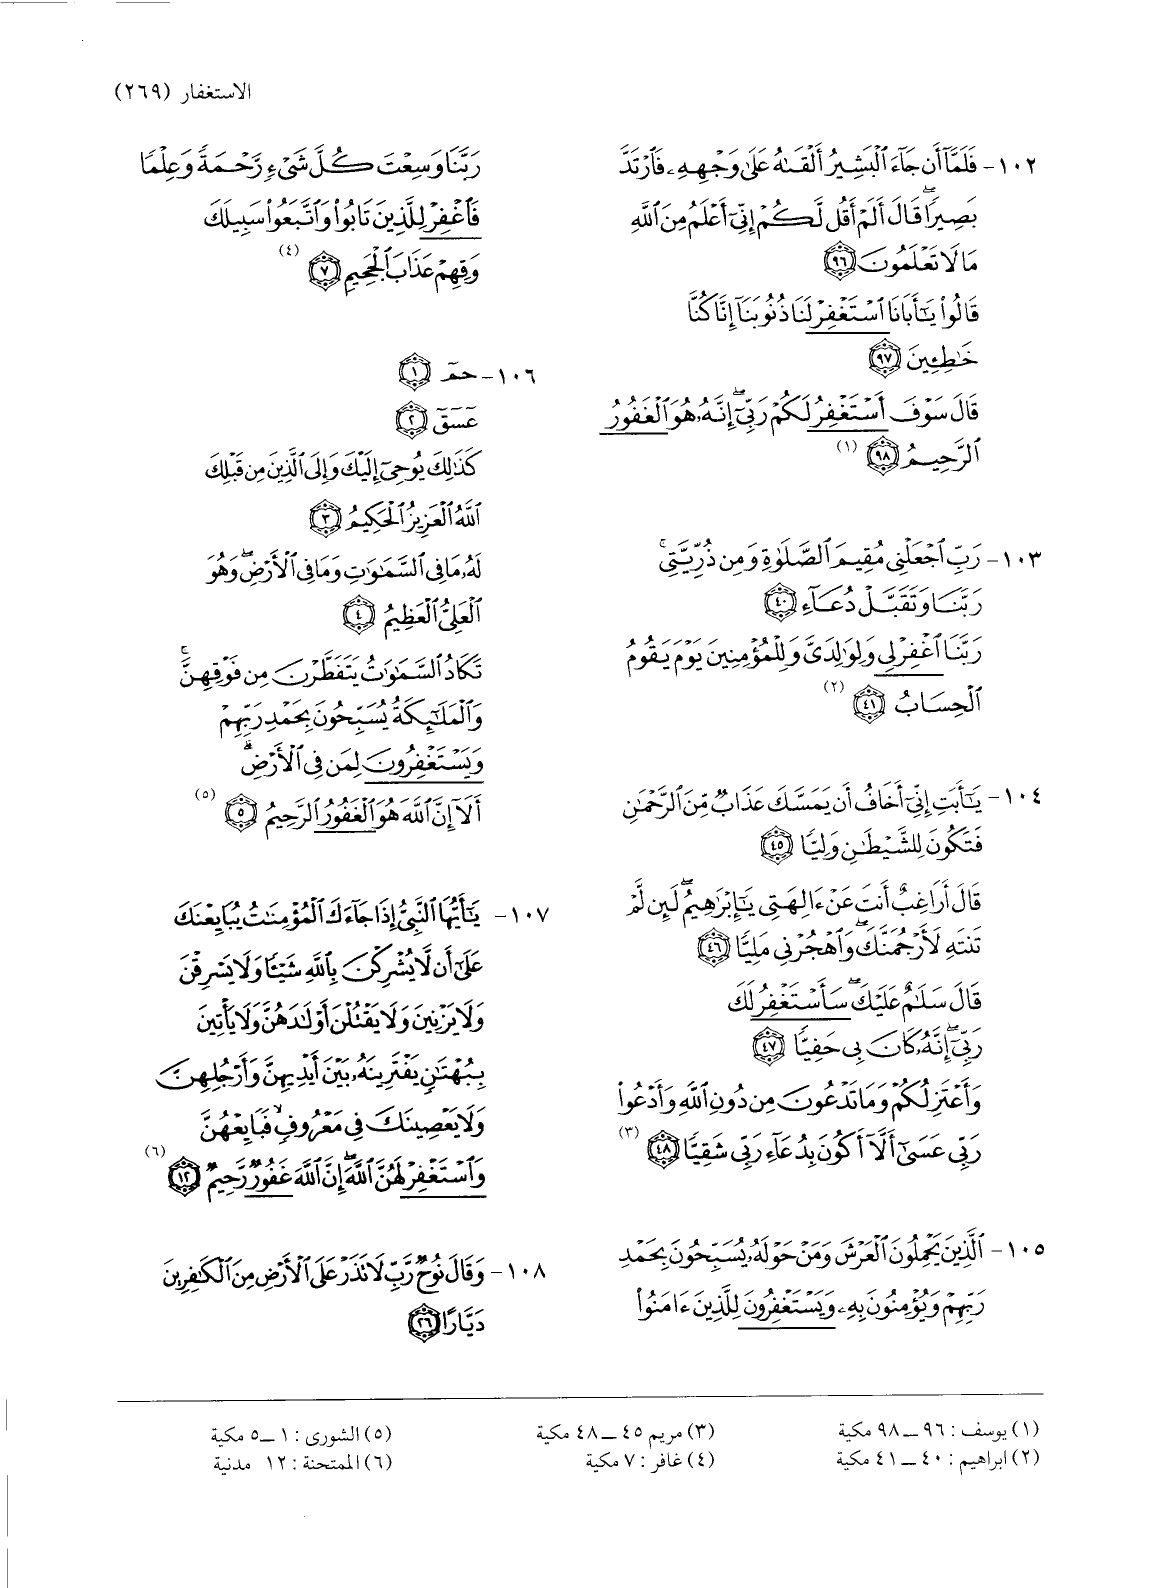 الاستغفار (٢٦٩)
١٠٢- فَلَمَّآ أَن جَآءَ ٱلْبَشِيرُ أَلْقَىٰهُ عَلَىٰ وَجْهِهِۦ فَٱرْتَدَّ
بَصِيرًا ۖ قَالَ أَلَمْ أَقُل لَّكُمْ إِنِّىٓ أَعْلَمُ مِنَ ٱللَّهِ
مَا لَا تَعْلَمُونَ ﴿٩٦﴾
قَالُوا۟ يَـٰٓأَبَانَا ٱسْتَغْفِرْ لَنَا ذُنُوبَنَآ إِنَّا كُنَّا
خَـٰطِـِٔينَ ﴿٩٧﴾
قَالَ سَوْفَ أَسْتَغْفِرُ لَكُمْ رَبِّىٓ ۖ إِنَّهُۥ هُوَ ٱلْغَفُورُ
ٱلرَّحِيمُ ﴿٩٨﴾ (١)
١٠٣- رَبِّ ٱجْعَلْنِى مُقِيمَ ٱلصَّلَوٰةِ وَمِن ذُرِّيَّتِى ۚ
رَبَّنَا وَتَقَبَّلْ دُعَآءِ ﴿٤٠﴾
رَبَّنَا ٱغْفِرْ لِى وَلِوَٰلِدَىَّ وَلِلْمُؤْمِنِينَ يَوْمَ يَقُومُ
ٱلْحِسَابُ ﴿٤١﴾ (٢)
١٠٤- يَـٰٓأَبَتِ إِنِّىٓ أَخَافُ أَن يَمَسَّكَ عَذَابٌ مِّنَ ٱلرَّحْمَـٰنِ
فَتَكُونَ لِلشَّيْطَـٰنِ وَلِيًّا ﴿٤٥﴾
قَالَ أَرَاغِبٌ أَنتَ عَنْ ءَالِهَتِى يَـٰٓإِبْرَٰهِيمُ ۖ لَئِن لَّمْ
تَنتَهِ لَأَرْجُمَنَّكَ ۖ وَٱهْجُرْنِى مَلِيًّا ﴿٤٦﴾
قَالَ سَلَـٰمٌ عَلَيْكَ ۖ سَأَسْتَغْفِرُ لَكَ
رَبِّىٓ ۖ إِنَّهُۥ كَانَ بِى حَفِيًّا ﴿٤٧﴾
وَأَعْتَزِلُكُمْ وَمَا تَدْعُونَ مِن دُونِ ٱللَّهِ وَأَدْعُوا۟
رَبِّى عَسَىٰٓ أَلَّآ أَكُونَ بِدُعَآءِ رَبِّى شَقِيًّا ﴿٤٨﴾ (٣)
١٠٥- ٱلَّذِينَ يَحْمِلُونَ ٱلْعَرْشَ وَمَنْ حَوْلَهُۥ يُسَبِّحُونَ بِحَمْدِ
رَبِّهِمْ وَيُؤْمِنُونَ بِهِۦ وَيَسْتَغْفِرُونَ لِلَّذِينَ ءَامَنُوا۟
رَبَّنَا وَسِعْتَ كُلَّ شَىْءٍ رَّحْمَةً وَعِلْمًا
فَٱغْفِرْ لِلَّذِينَ تَابُوا۟ وَٱتَّبَعُوا۟ سَبِيلَكَ
وَقِهِمْ عَذَابَ ٱلْجَحِيمِ ﴿٧﴾ (٤)
١٠٦- حمٓ ﴿١﴾
عٓسٓقٓ ﴿٢﴾
كَذَٰلِكَ يُوحِىٓ إِلَيْكَ وَإِلَى ٱلَّذِينَ مِن قَبْلِكَ
ٱللَّهُ ٱلْعَزِيزُ ٱلْحَكِيمُ ﴿٣﴾
لَهُۥ مَا فِى ٱلسَّمَـٰوَٰتِ وَمَا فِى ٱلْأَرْضِ ۖ وَهُوَ
ٱلْعَلِىُّ ٱلْعَظِيمُ ﴿٤﴾
تَكَادُ ٱلسَّمَـٰوَٰتُ يَتَفَطَّرْنَ مِن فَوْقِهِنَّ ۚ
وَٱلْمَلَـٰٓئِكَةُ يُسَبِّحُونَ بِحَمْدِ رَبِّهِمْ
وَيَسْتَغْفِرُونَ لِمَن فِى ٱلْأَرْضِ ۗ
أَلَآ إِنَّ ٱللَّهَ هُوَ ٱلْغَفُورُ ٱلرَّحِيمُ ﴿٥﴾ (٥)
١٠٧- يَـٰٓأَيُّهَا ٱلنَّبِىُّ إِذَا جَآءَكَ ٱلْمُؤْمِنَـٰتُ يُبَايِعْنَكَ
عَلَىٰٓ أَن لَّا يُشْرِكْنَ بِٱللَّهِ شَيْـًٔا وَلَا يَسْرِقْنَ
وَلَا يَزْنِينَ وَلَا يَقْتُلْنَ أَوْلَـٰدَهُنَّ وَلَا يَأْتِينَ
بِبُهْتَـٰنٍ يَفْتَرِينَهُۥ بَيْنَ أَيْدِيهِنَّ وَأَرْجُلِهِنَّ
وَلَا يَعْصِينَكَ فِى مَعْرُوفٍ ۙ فَبَايِعْهُنَّ
وَٱسْتَغْفِرْ لَهُنَّ ٱللَّهَ ۖ إِنَّ ٱللَّهَ غَفُورٌ رَّحِيمٌ ﴿١٢﴾ (٦)
١٠٨- وَقَالَ نُوحٌ رَّبِّ لَا تَذَرْ عَلَى ٱلْأَرْضِ مِنَ ٱلْكَـٰفِرِينَ
دَيَّارًا ﴿٢٦﴾
(١) يوسف : ٩٦ – ٩٨ مكية
(٢) ابراهيم : ٤٠ – ٤١ مكية
(٣) مريم ٤٥ – ٤٨ مكية
(٤) غافر : ٧ مكية
(٥) الشورى : ١ – ٥ مكية
(٦) الممتحنة : ١٢ مدنية